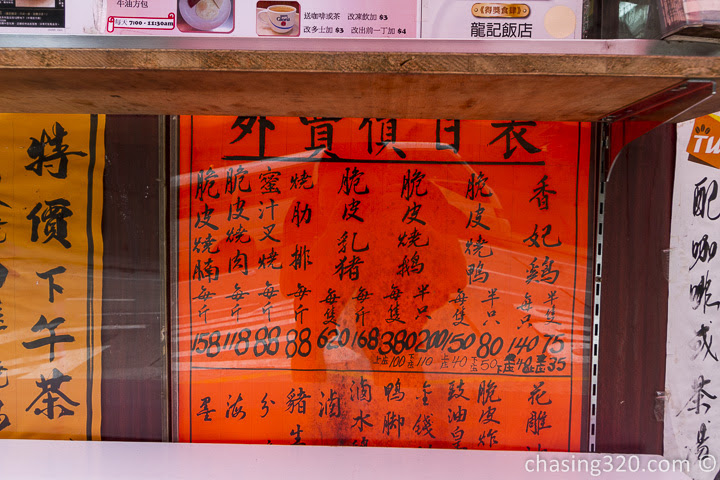 牛油方包
每天 7:00 - 11:30am
送咖啡或茶 改凍飲加 $3
改多士加 $3 改出前一丁加 $4
得獎食肆
龍記飯店
特價下午茶
外賣價目表
香妃雞 每隻 140 半隻 75
脆皮燒鴨 每隻 150 半只 80
脆皮燒鵝 每隻 380 半只 200
脆皮乳猪 每隻 620 每斤 168
燒肋排 每斤 88
蜜汁叉燒 每斤 88
脆皮燒肉 每斤 118
脆皮燒腩 每斤 158
上庄100 下庄110 上庄40 下庄50
35
花雕
脆皮炸
豉油皇
金錢
鴨脚
滷水
滷
豬
海
墨
配咖啡或茶
chasing320.com ©